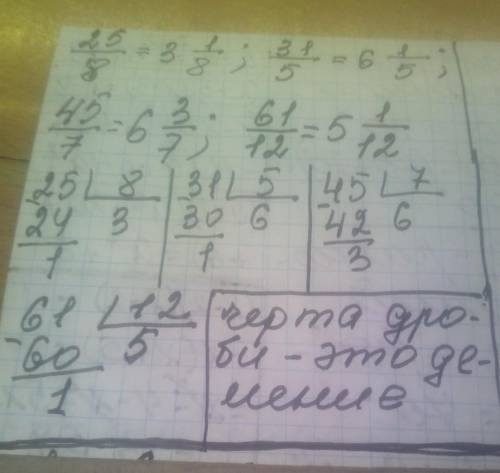 25/8 = 3 1/8; 31/5 = 6 1/5;
45/7 = 6 3/7; 61/12 = 5 1/12
-25 | 8 -31 | 5 -45 | 7
24 3 30 6 42 6
1 1 3
-61 | 12
60 5
1
черта дро-
би - это де-
ление